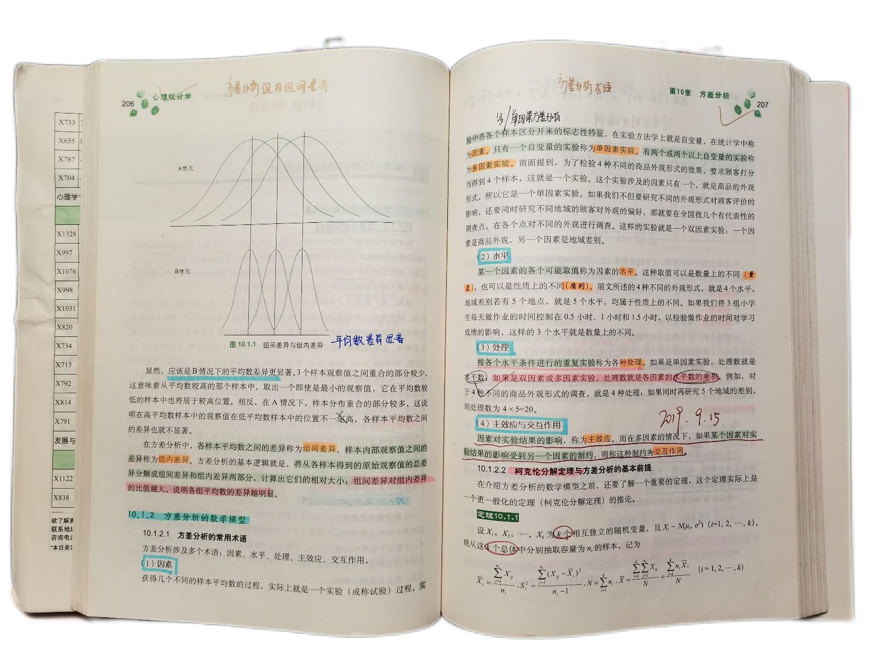 X733
X655
X787
X704
心理学
X1328
X997
X1076
X998
X1031
X820
X734
X715
X792
X814
X791
发展与
X1122
X838
……
欲了解
联系地
咨询电
*本目录
206 心理统计学
方差分析 组内组间差异
A情况
B情况
图 10.1.1 组间差异与组内差异
平均数差异显著
显然，应该是B情况下的平均数差异更显著，3个样本观察值之间重合的部分较少，
这意味着从平均数较高的那个样本中，取出一个即使是最小的观察值，它在平均数较
低的样本中也将居于较高位置。相反，在 A 情况下，样本分布重合的部分较多，这说
明在高平均数样本中的观察值在低平均数样本中的位置不一定高，各样本平均数之间
的差异也就不显著。
在方差分析中，各样本平均数之间的差异称为组间差异，样本内部观察值之间的
差异称为组内差异。方差分析的基本逻辑就是，将从各样本得到的原始观察值的总差
异分解成组间差异和组内差异两部分，计算出它们的相对大小；组间差异对组内差异
的比值越大，说明各组平均数的差异越明显。
10.1.2 方差分析的数学模型
10.1.2.1 方差分析的常用术语
方差分析涉及多个术语：因素、水平、处理、主效应、交互作用。
（1）因素
获得几个不同的样本平均数的过程，实际上就是一个实验（或称试验）过程。实
方差分析术语
第10章 方差分析 207
单因素方差分析
验中将各个样本区分开来的标志性特征，在实验方法学上就是自变量，在统计学中称
为因素。只有一个自变量的实验称为单因素实验。有两个或两个以上自变量的实验称
为多因素实验。前面提到，为了检验 4 种不同的商品外观形式的效果，要求顾客打分
而得到 4 个样本，这就是一个实验。这个实验涉及的因素只有一个，就是商品的外观
形式，所以它是一个单因素实验。如果我们不但要研究不同的外观形式对顾客评价的
影响，还要同时研究不同地域的顾客对外观的偏好，那就要在全国找几个有代表性的
调查点，在各个点对不同的外观进行调查。这样的实验就是一个双因素实验，一个因
素是商品外观，另一个因素是地域差别。
（2）水平
某一个因素的各个可能取值称为因素的水平。这种取值可以是数量上的不同（量
差），也可以是性质上的不同（质别）。前文所述的4种不同的外观形式，就是4个水平，
地域差别若有 5 个地点，就是 5 个水平，均属于性质上的不同。如果我们将 3 组小学
生每天做作业的时间控制在 0.5 小时、1 小时和 1.5 小时，以检验做作业的时间对学习
成绩的影响，这样的 3 个水平就是数量上的不同。
（3）处理
按各个水平条件进行的重复实验称为各种处理。如果是单因素实验，处理数就是
水平数；如果是双因素或多因素实验，处理数就是各因素的水平数的乘积。例如，对
于4种不同的商品外观形式的调查，就是 4 种处理；如果同时再研究 5 个地域的差别，
则处理数为 4×5=20。
2019.9.15
（4）主效应与交互作用
因素对实验结果的影响，称为主效应。而在多因素的情况下，如果某个因素对实
验结果的影响受到另一个因素的制约，则称这种制约为交互作用。
10.1.2.2 柯克伦分解定理与方差分析的基本前提
在介绍方差分析的数学模型之前，还要了解一个重要的定理，这个定理实际上是
一个更一般化的定理（柯克伦分解定理）的推论。
定理10.1.1
设 X₁，X₂，…，Xₖ 为 k 个相互独立的随机变量，且 Xᵢ ~ N(μᵢ, σ²) (i=1, 2, …, k)，
现从这 k 个总体中分别抽取容量为 nᵢ 的样本，记为